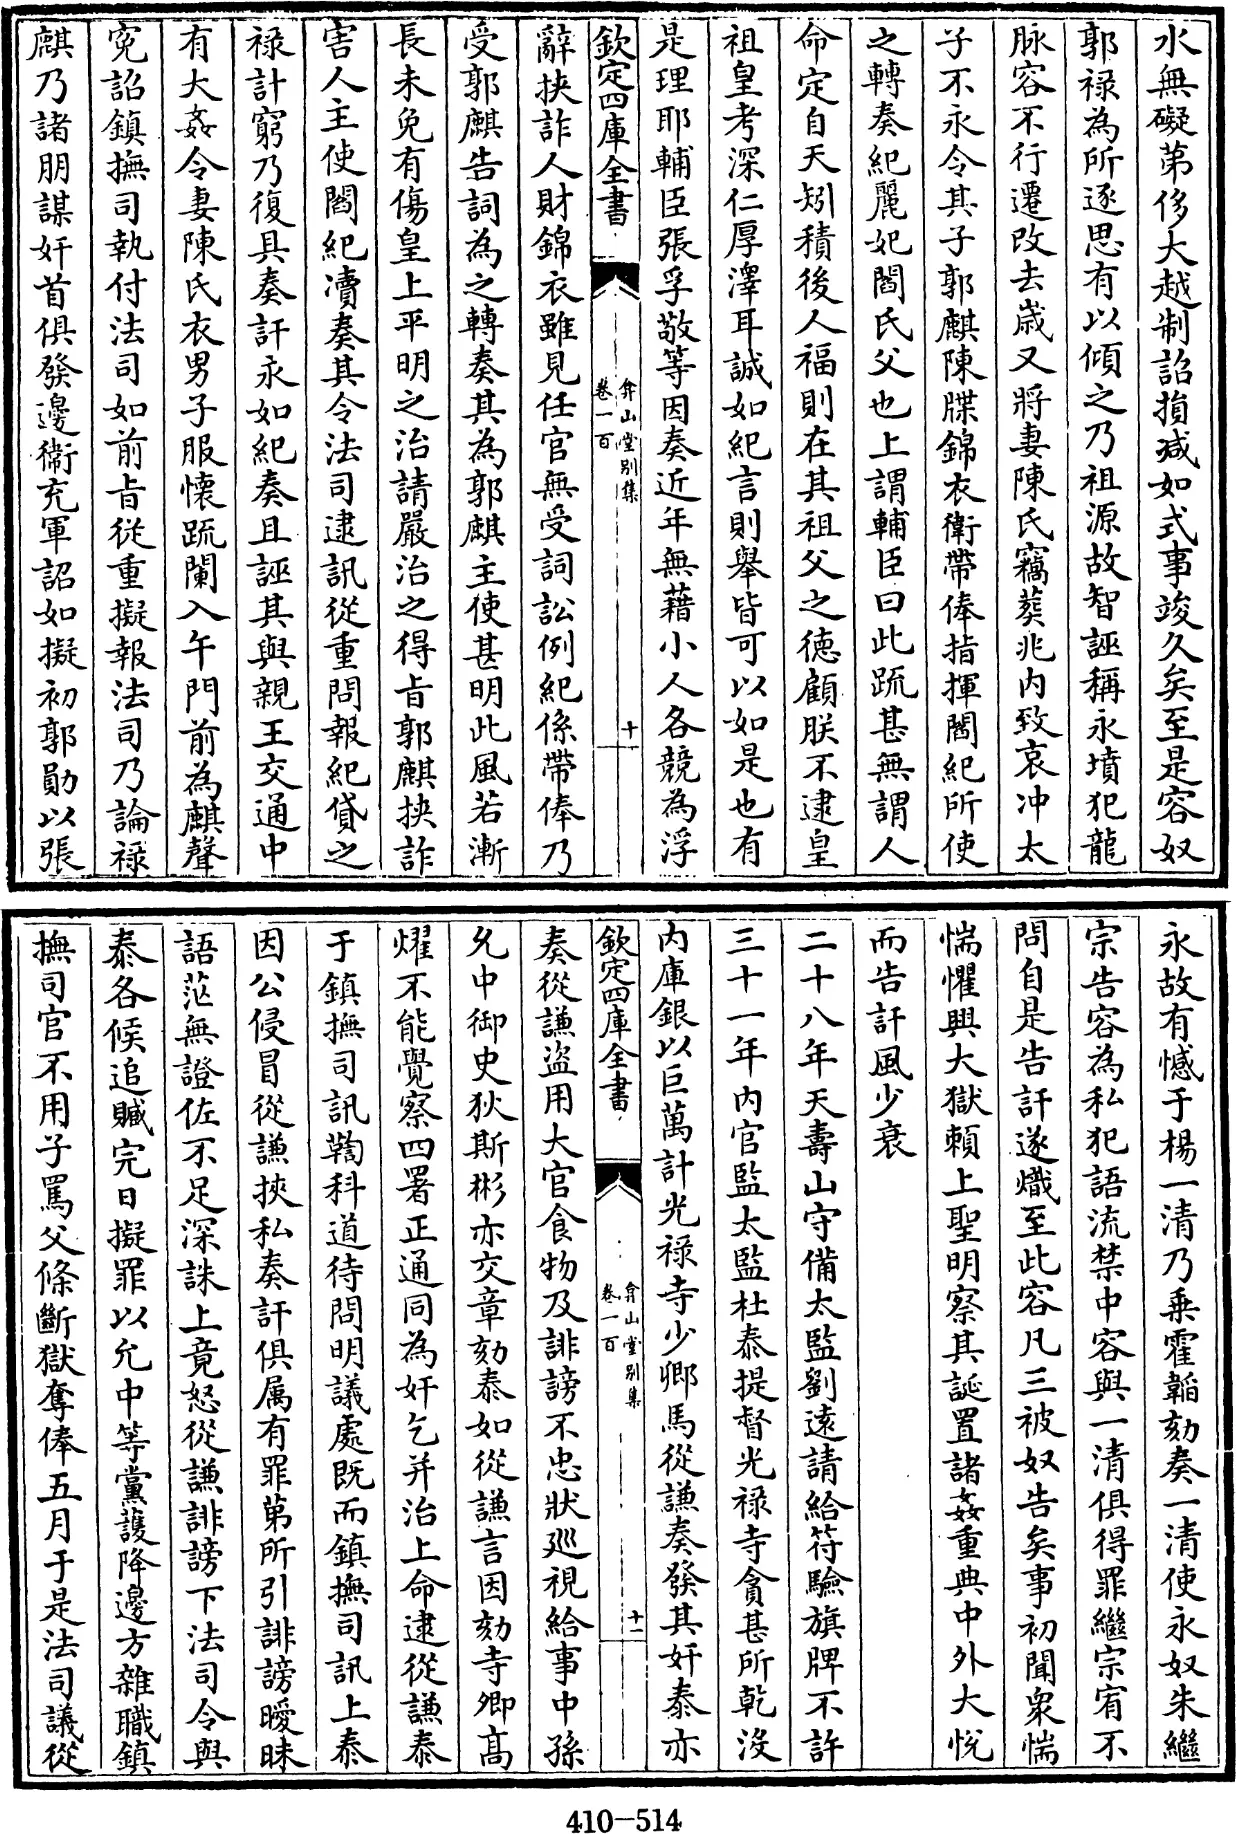 水無礙第侈大越制詔損减如式事竣久矣至是容奴
郭禄為所逐思有以傾之乃祖源故智誣稱永墳犯龍
脉容不行遷改去嵗又將妻陳氏竊葬兆内致哀冲太
子不永令其子郭麒陳牒錦衣衛帶俸指揮閻紀所使
之轉奏紀麗妃閻氏父也上謂輔臣曰此疏甚無謂人
命定自天矧積後人福則在其祖父之徳顧朕不逮皇
祖皇考深仁厚澤耳誠如紀言則舉皆可以如是也有
是理耶輔臣張孚敬等因奏近年無藉小人各競為浮
欽定四庫全書
弇山堂别集
卷一百
十
辭挾詐人財錦衣雖見任官無受詞訟例紀係帶俸乃
受郭麒告詞為之轉奏其為郭麒主使甚明此風若漸
長未免有傷皇上平明之治請嚴治之得㫖郭麒挾詐
害人主使閻紀瀆奏其令法司逮訊從重問報紀貸之
禄計窮乃復具奏訐永如紀奏且誣其與親王交通中
有大姦令妻陳氏衣男子服懐疏闌入午門前為麒聲
寃詔鎮撫司執付法司如前㫖從重擬報法司乃論禄
麒乃諸朋謀奸首俱發邊衛充軍詔如擬初郭勛以張
永故有憾于楊一清乃乗霍韜劾奏一清使永奴朱繼
宗告容為私犯語流禁中容與一清俱得罪繼宗宥不
問自是告訐遂熾至此容凡三被奴告矣事初聞衆惴
惴懼興大獄頼上聖明察其誕置諸姦重典中外大恱
而告訐風少衰
二十八年天夀山守備太監劉遠請給符驗旗牌不許
三十一年内官監太監杜泰提督光禄寺貪甚所乾没
内庫銀以巨萬計光禄寺少卿馬從謙奏發其奸泰亦
欽定四庫全書
弇山堂别集
卷一百
十一
奏從謙盗用大官食物及誹謗不忠狀廵視給事中孫
允中御史狄斯彬亦交章劾泰如從謙言因劾寺卿髙
燿不能覺察四署正通同為奸乞并治上命逮從謙泰
于鎮撫司訊鞫科道待問明議處既而鎮撫司訊上泰
因公侵冒從謙挾私奏訐俱属有罪第所引誹謗曖昧
語茫無證佐不足深誅上竟怒從謙誹謗下法司令與
泰各候追贓完日擬罪以允中等黨護降邊方雜職鎮
撫司官不用子罵父條斷獄奪俸五月于是法司議從
410-514